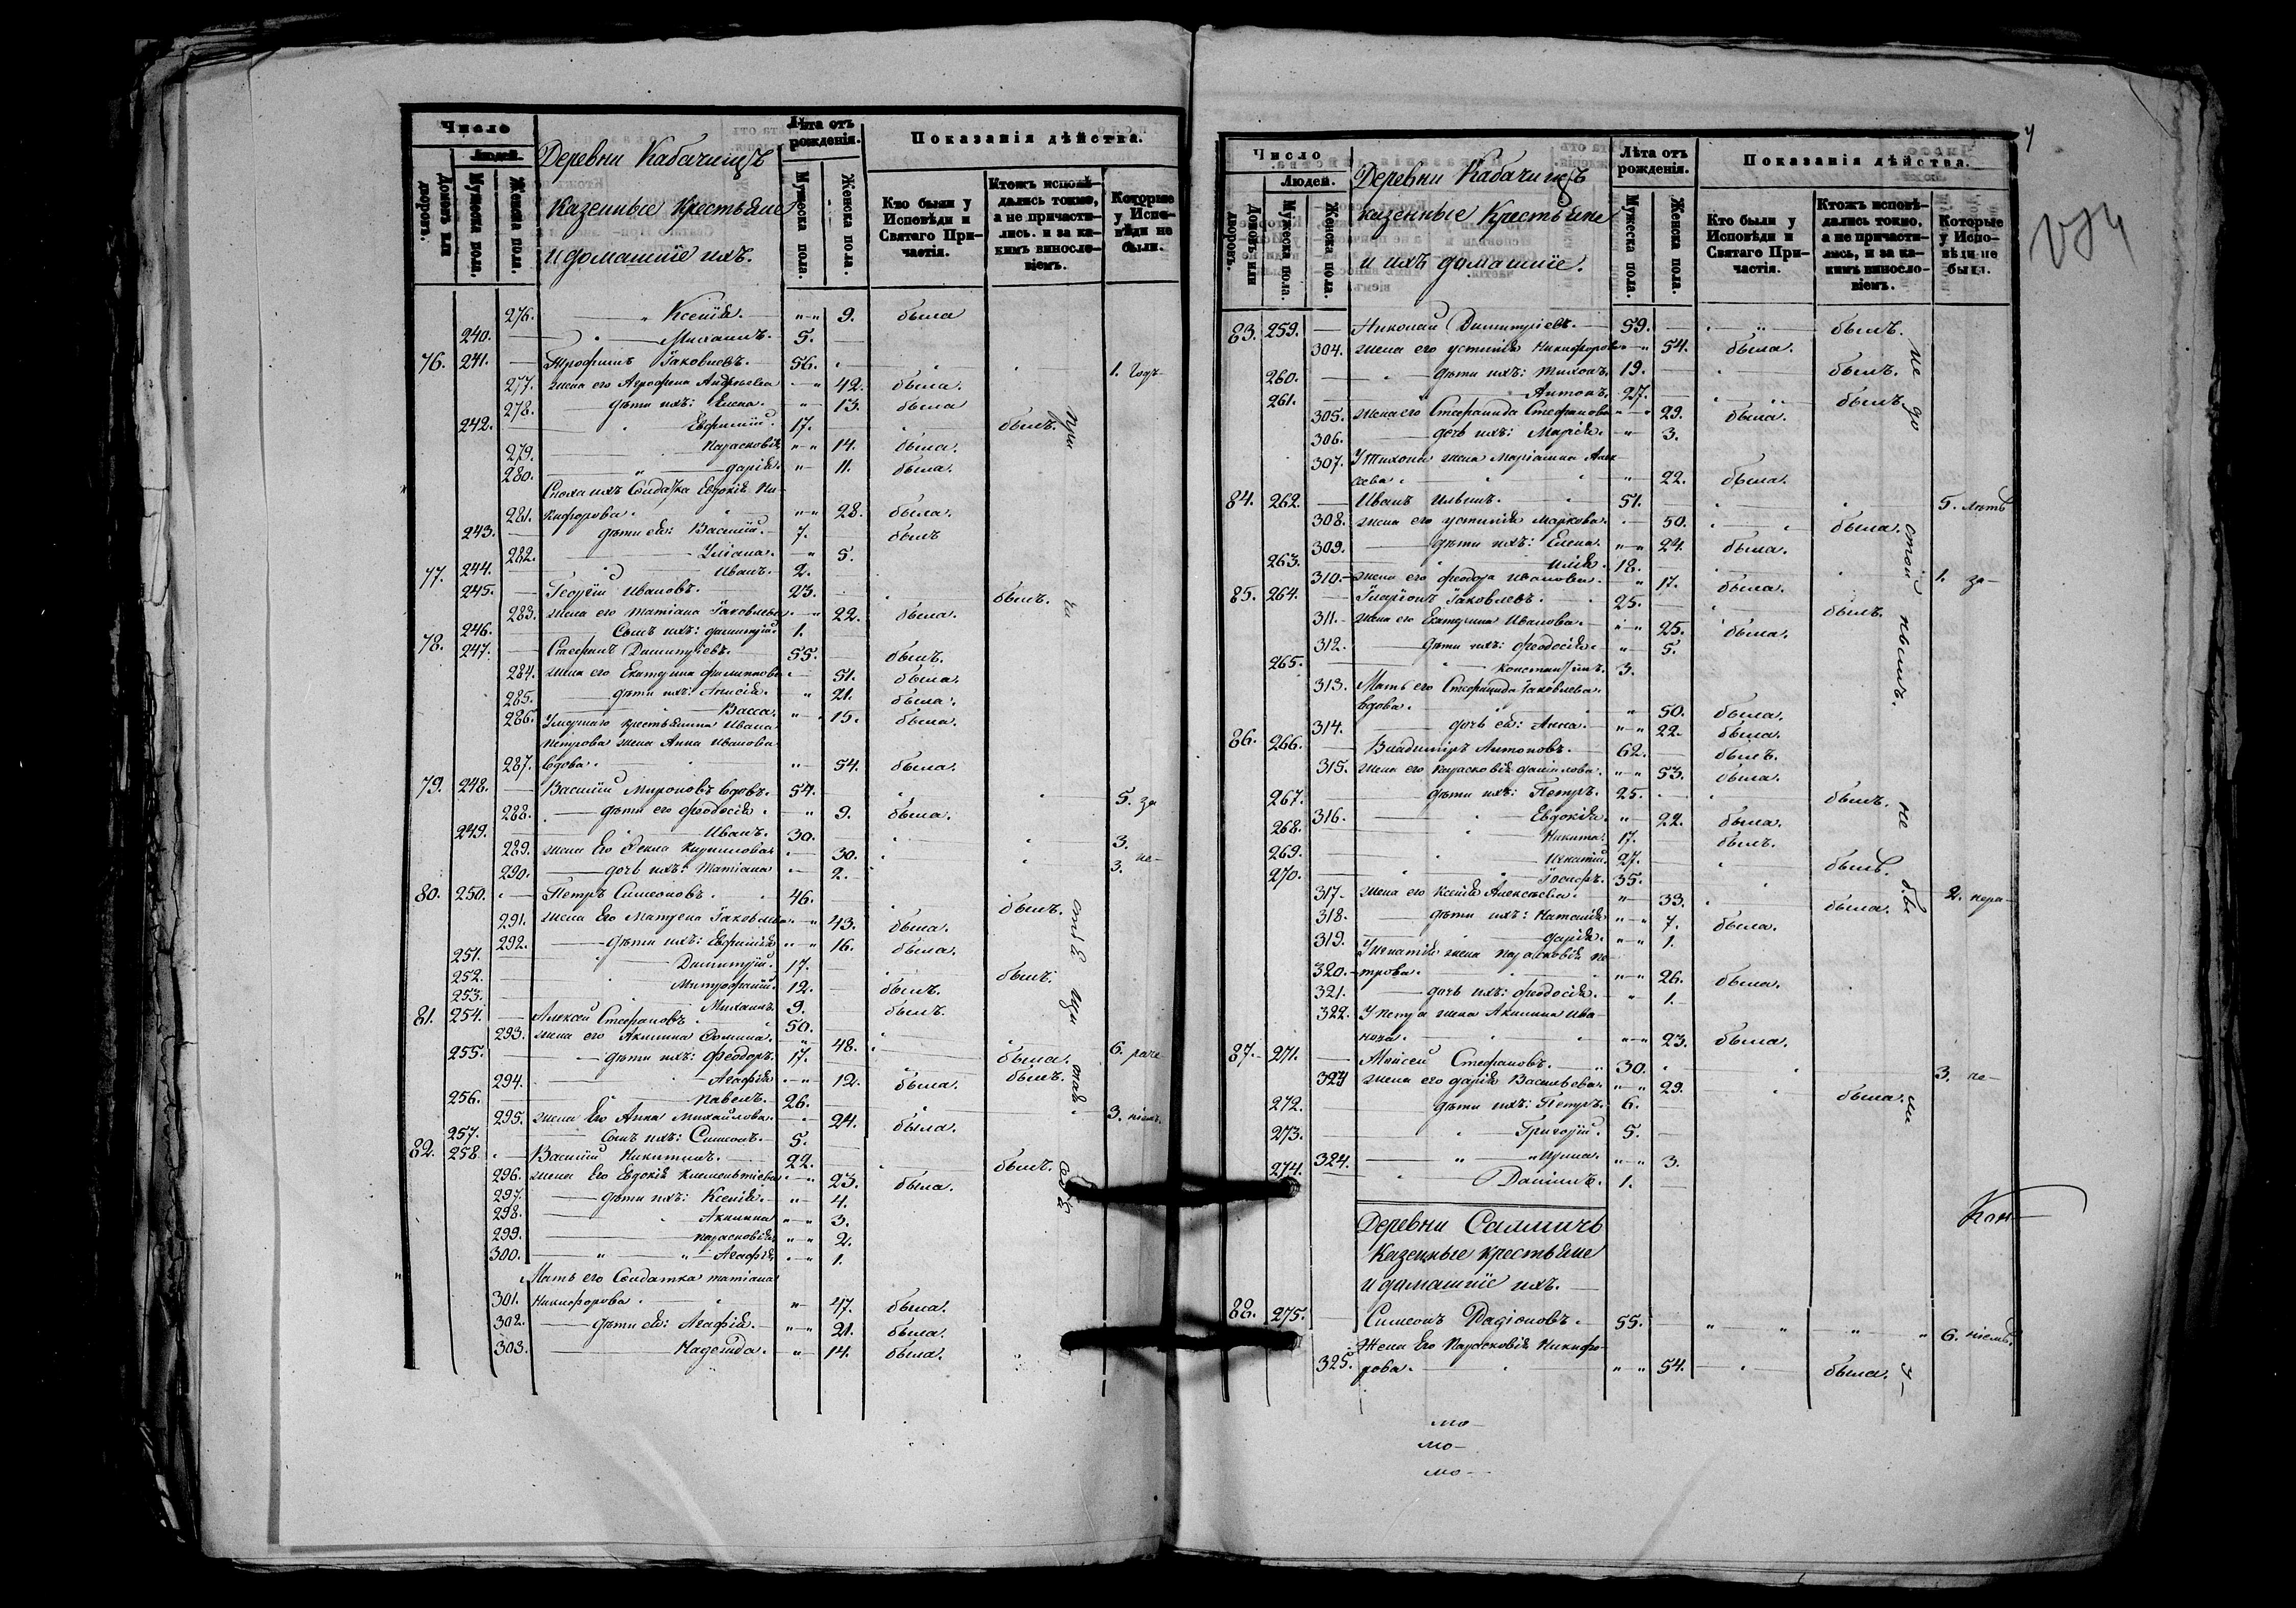 Число
Людей.
Домовъ или дворовъ.
Мужеска пола.
Женска пола.
Деревни Кабачищъ
казенные Крестьяне
и домашніе ихъ.
Лѣта отъ рожденія.
Мужеска пола.
Женска пола.
Показанія дѣйства.
Кто были у Исповѣди и Святаго Причастія.
Ктожъ исповѣдались токмо, а не причастились. и за какимъ винословіемъ.
Которые у Исповѣди не были.
276. Ксенія. 9. была
240. Михаилъ. 5.
76. 241. Трофимъ Іаковлевъ. 56. 1. годъ
277. жена его Агрофена Андреева 42. была.
278. дѣти ихъ: Елена. 13. была
242. Евфимій. 17. былъ.
279. Парасковія 14. была.
280. дарія. 11. была.
Сноха ихъ Солдатка Евдокія Ни-
281. кифорова. 28. была.
243. дѣти ея: Василій. 7. былъ
282. Уліана. 5.
244. Иванъ. 2.
77. 245. Георгій Ивановъ. 23. былъ.
283. жена его Татіана Іаковлева 22. была.
246. Сынъ ихъ: димитрій. 1.
78. 247. Стефанъ Димитріевъ. 55. былъ.
284. жена его Екатерина филиппова 51. была.
285. дѣти ихъ: Анисія. 21. была.
286. Васса. 15. была.
Умершаго крестьянина Ивана
Петрова жена Анна Иванова
287. вдова. 54. была.
79. 248. Василій Мироновъ вдовъ. 54. 5. за
288. дѣти его Феодосія. 9. была.
249. Иванъ. 30. 3.
289. жена Его Фекла Кириллова 30. 3. не-
290. дочь ихъ: Татіана 2.
80. 250. Петръ Симеоновъ. 46. былъ.
291. жена Его Матрена Іаковлева 43. была.
292. дѣти ихъ: Евфимія 16. была.
251. Димитрій. 17. былъ.
252. Митрофаній. 12. былъ.
253. Михаилъ. 9. былъ.
81. 254. Алексей Стефановъ 50. 6. раче
293. жена его Акилина Фомина. 48. была.
255. дѣти ихъ: Феодоръ. 17. былъ.
294. Агафія 12. была.
256. Павелъ. 26. 3. ніемъ.
295. жена Его Анна Михайлова. 24. была.
257. Сынъ ихъ: Симеонъ. 5.
82. 258. Василій Никитинъ. 22. былъ.
296. жена Его Евдокія Клементіева 23. была.
297. дѣти ихъ: Ксенія. 4.
298. Акилина 3.
299. параскобія 2.
300. Агафія 1.
Мать его Солдатка татіана
301. Никифорова. 47. была.
302. дѣти ея: Агафія. 21. была.
303. Надежда. 14. была.
Число
Людей.
Домовъ или дворовъ.
Мужеска пола.
Женска пола.
Деревни Кабачищъ
казенные Крестьяне
и ихъ домашніе.
Лѣта отъ рожденія.
Мужеска пола.
Женска пола.
Показанія дѣйства.
Кто были у Исповѣди и Святаго Причастія.
Ктожъ исповѣдались токмо, а не причастились, и за какимъ винословіемъ.
Которые у Исповѣди не были.
83. 259. Николай Димитріевъ. 59. былъ.
304. жена его устинія Никифорова 54. была.
260. дѣти ихъ: Тихонъ. 19. былъ.
261. Антонъ. 27. былъ
305. жена его Стефанида Стефанова 29. была.
306. дочь ихъ: Марія. 3.
307. У Тихона жена Маріанна Алек
сеева. 22. была.
84. 262. Иванъ Ильинъ. 51. 5. лѣтъ
308. жена его устинія Маркова. 50. была.
309. дѣти ихъ: Елена. 24. была.
263. Илія. 18. 1. за-
310. жена его феодора Иванова. 17. была.
85. 264. Иларіонъ Іаковлевъ. 25. былъ.
311. жена его Екатерина Иванова. 25. была.
312. дѣти ихъ: Феодосія. 5.
265. Константинъ. 3.
313. Мать его Стефанида Іаковлева.
вдова. 50. была.
314. дочь ея: Анна. 22. была.
86. 266. Владимиръ Антоновъ. 62. былъ.
315. жена его Параскобія даніилова. 53. была.
267. дѣти ихъ: Петръ. 25. былъ.
316. Евдокія. 22. была.
268. Никита. 17. былъ.
269. Игнатій. 27. былъ.
270. Іосифъ. 35. 2. нера-
317. жена его Ксенія Алексеева. 33. была.
318. дѣти ихъ: Наталія 7. была.
319. дарія. 1.
У Игнатія жена Параскобія Пе
320. трова. 26. была.
321. дочь ихъ: Феодосія. 1.
322. У Петра жена Акилина Ива-
нова. 23. была.
87. 271. Моисей Стефановъ. 30. 3. не-
323 жена его дарія Васильева. 29. была.
272. дѣти ихъ: Петръ. 6.
273. Григорій. 5.
324. Ирина. 3.
274. Даніилъ. 1.
Деревни Саммичь
Казенные крестьяне
и домашніе ихъ.
88. 275. Симеонъ Радіоновъ. 55. 6. ніемъ.
Жена Его Параскобія Никифо-
325. рова. 54. была.
мо-
мо-
мо-